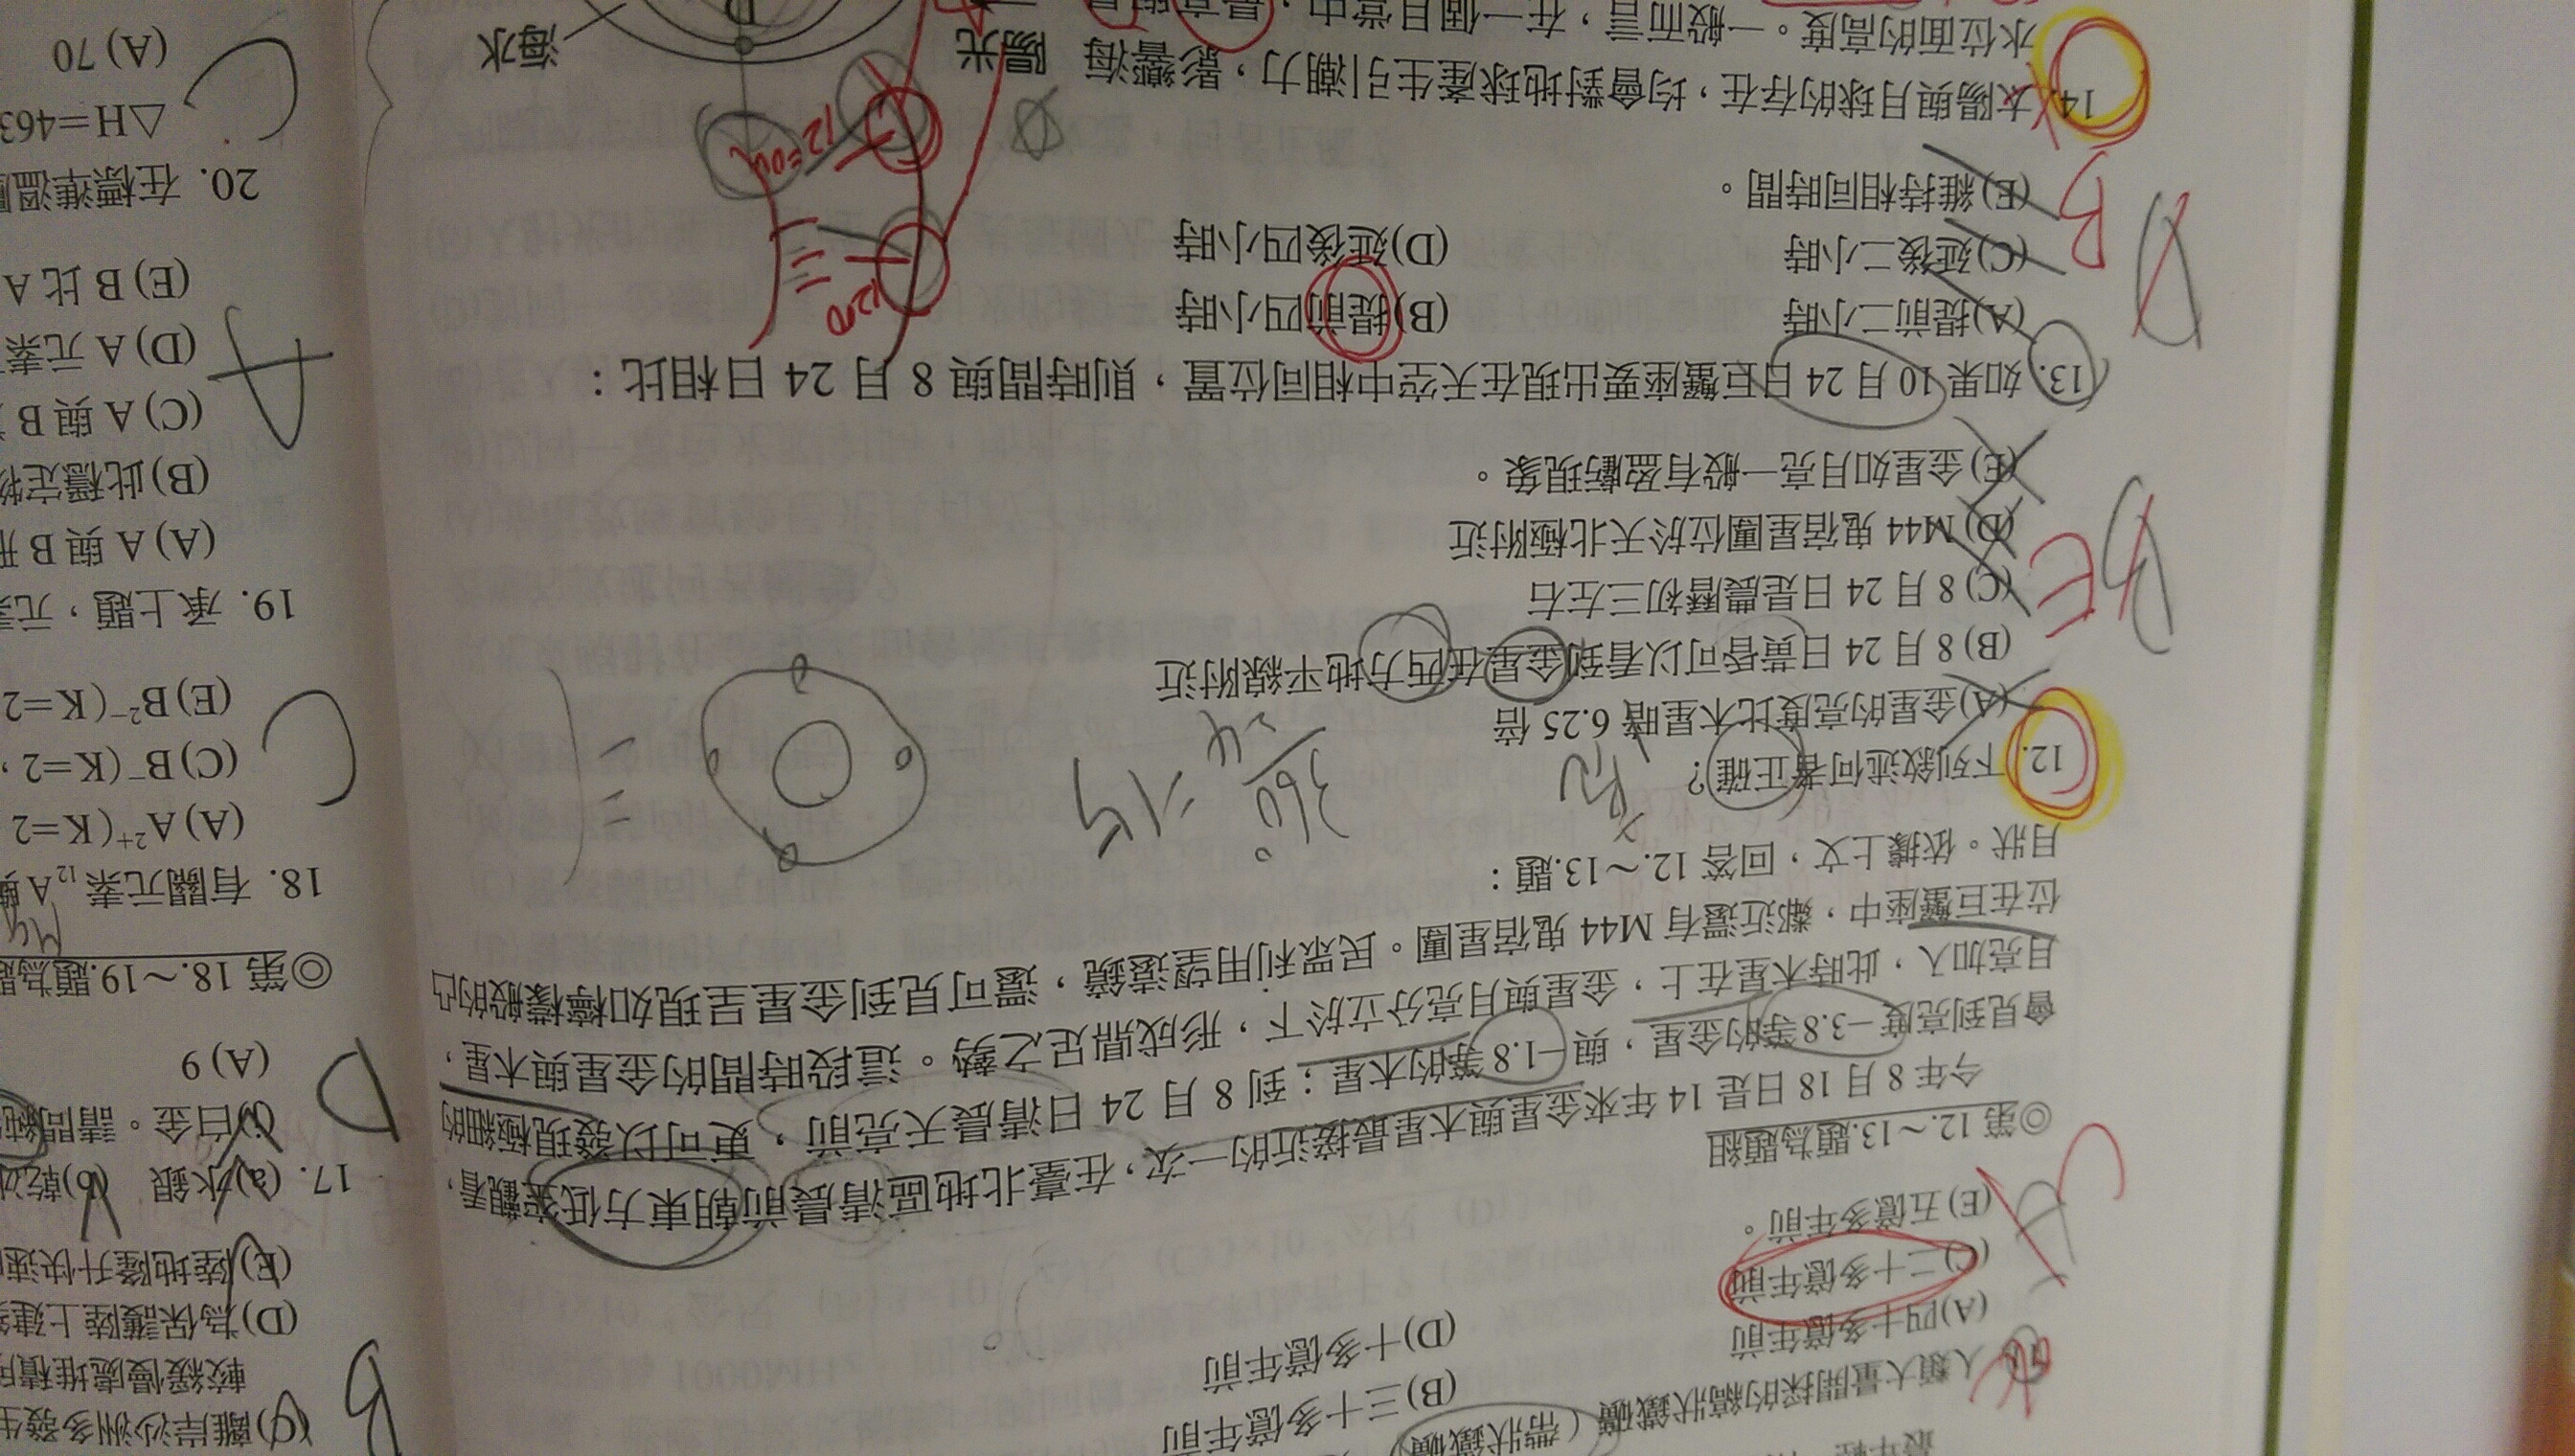 人類大量開採的縞狀鐵礦（帶狀鐵礦）
(A)四十多億年前 (B)三十多億年前
(C)二十多億年前 (D)十多億年前
(E)五億多年前。
◎第 12.～13.題為題組
今年 8 月 18 日是 14 年來金星與木星最接近的一次，在臺北地區清晨前朝東方低空觀看，
會見到亮度 −3.8 等的金星，與 −1.8 等的木星；到 8 月 24 日清晨天亮前，更可以發現極細的
月亮加入，此時木星在上，金星與月亮分立於下，形成鼎足之勢。這段時間的金星與木星，
位在巨蟹座中，鄰近還有 M44 鬼宿星團。民眾利用望遠鏡，還可見到金星呈現如檸檬般的凸
月狀。依據上文，回答 12.～13.題：
12. 下列敘述何者正確？
(A)金星的亮度比木星暗 6.25 倍
(B) 8 月 24 日黃昏可以看到金星在西方地平線附近
(C) 8 月 24 日是農曆初三左右
(D) M44 鬼宿星團位於天北極附近
(E)金星如月亮一般有盈虧現象。
360°
24
=15
BE
13. 如果 10 月 24 日巨蟹座要出現在天空中相同位置，則時間與 8 月 24 日相比：
(A)提前二小時 (B)提前四小時
(C)延後二小時 (D)延後四小時
(E)維持相同時間。
B
1200
14. 太陽與月球的存在，均會對地球產生引潮力，影響海
水位面的高度。一般而言，在一個月當中，
陽光
海水
(C)離岸沙洲多發生
較緩慢處堆積
(D)為保護陸上建
(E)陸地隆升快速
B
17. (a)水銀 (b)乾冰
(i)白金。請問純
(A) 9
D
◎第 18.～19.題為題
Mg
18. 有關元素 ₁₂A 與
(A) A²⁺(K=2
(C) B⁻(K=2，
(E) B²⁻(K=2
C
19. 承上題，元素
(A) A 與 B
(B)此穩定物
(C) A 與 B
(D) A 元素
(E) B 比 A
A
20. 在標準溫
△H=463
(A) 70
C